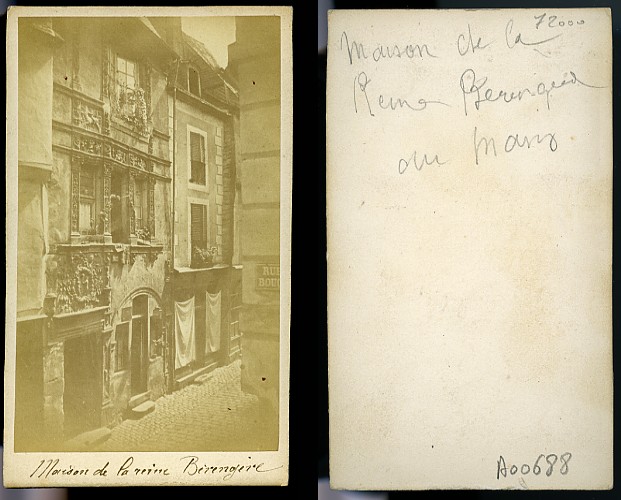 RUE
BOUC
Maison de la reine Bérengère
72000
Maison de la
Reine Berengère
au Mans
A00688